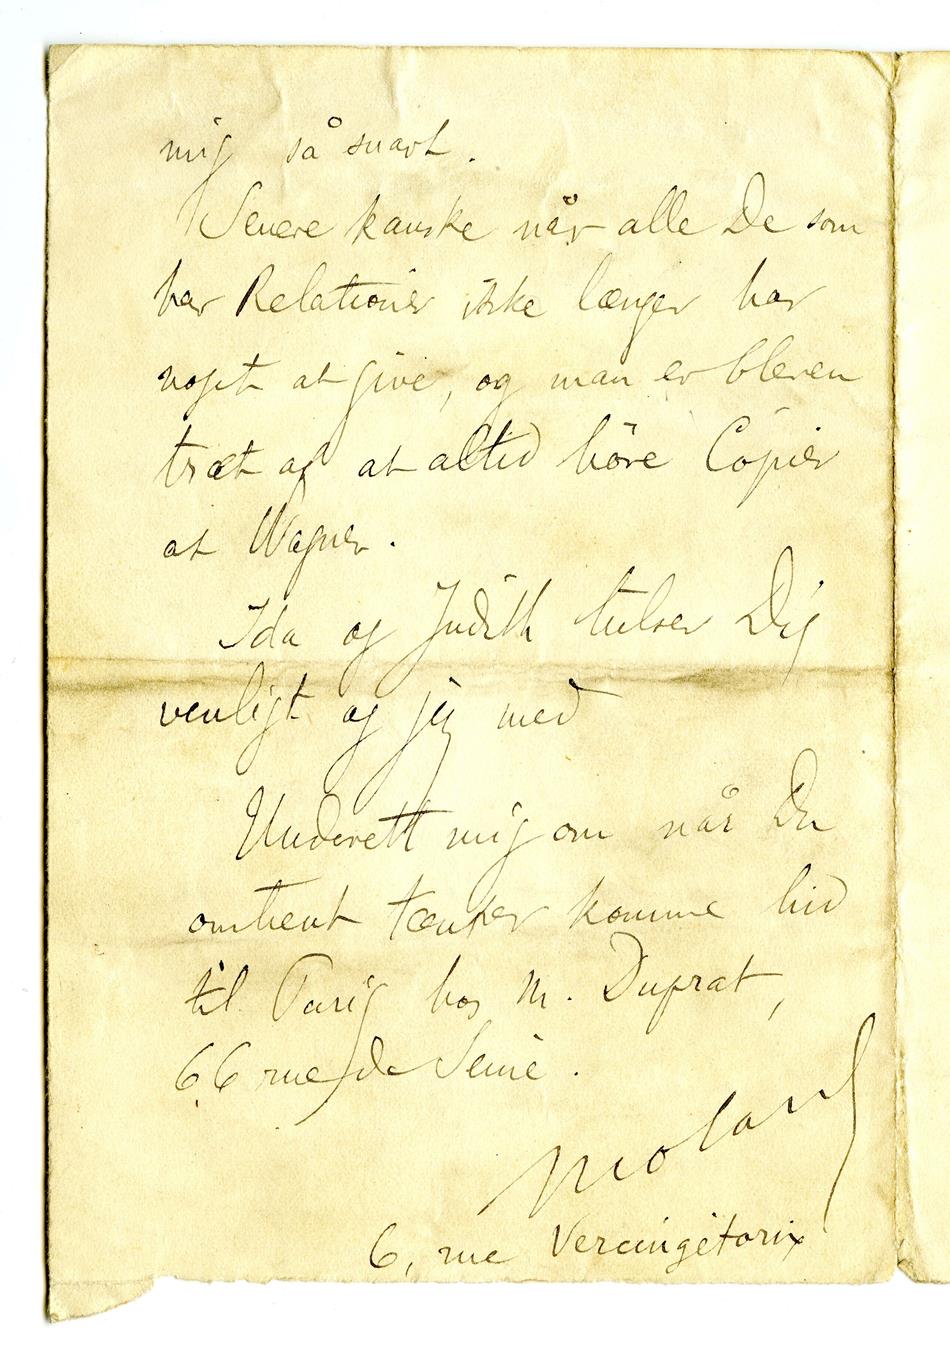 mig så snart.
Senere kanske når alle De som
har Relationer ikke længer har
noget at give, og man er bleven
træt af at altid höre Copier
at Wagner.
Ida og Judith hilser Dig
venligt og jeg med
Underett mig om når Du
omtrent tænker komme hid
til Paris hos M. Duprat,
66 rue de Seine.
Molard
6, rue Vercingétorix